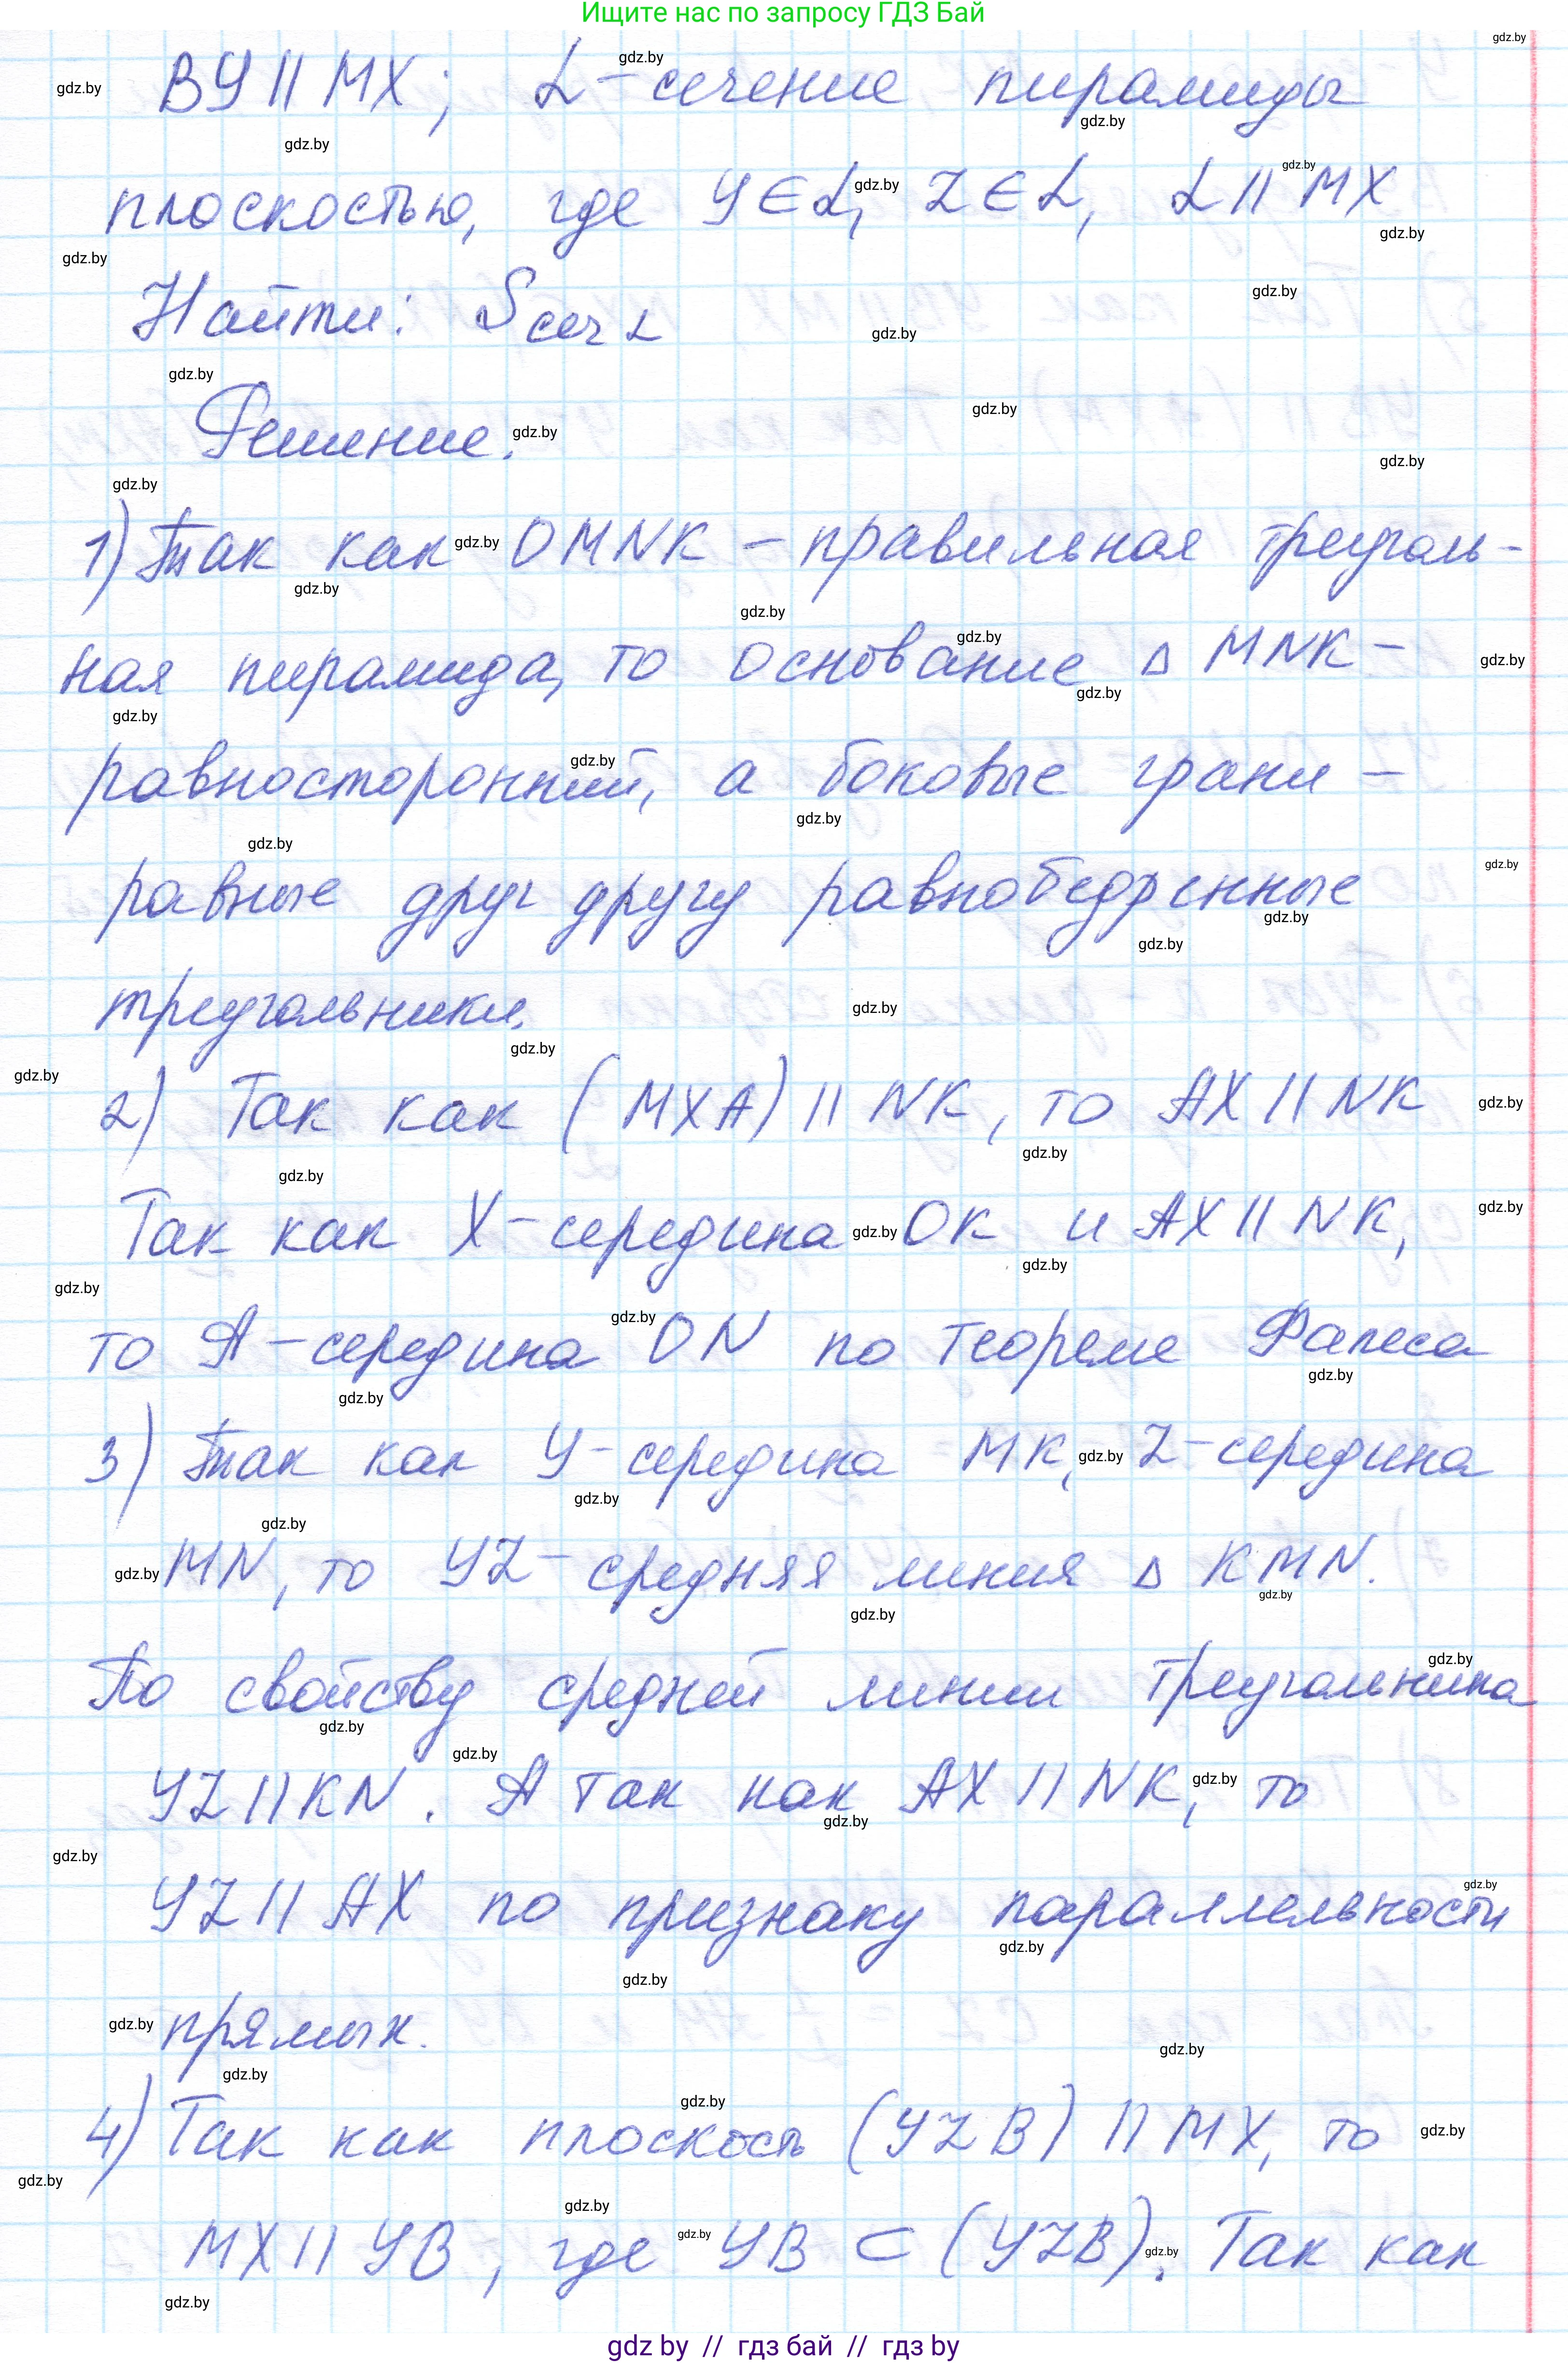 Ищите нас по запросу ГДЗ Бай
ВУ || МХ; α - сечение пирамиды
плоскостью, где У ∈ α, Z ∈ α, α || МХ
Найти: Sсеч α
Решение.
1) Так как OMNK - правильная треуголь-
ная пирамида, то основание △ MNK -
равносторонний, а боковые грани -
равные друг другу равнобедренные
треугольники.
2) Так как (МХА) || NK, то АХ || NK
Так как Х - середина ОК и АХ || NK,
то А - середина ON по теореме Фалеса
3) Так как У - середина МК, Z - середина
MN, то УZ - средняя линия △ KMN.
По свойству средней линии треугольника
УZ || KN. А так как АХ || NK, то
УZ || АХ по признаку параллельности
прямых.
4) Так как плоскость (УZВ) || МХ, то
МХ || УВ, где УВ ⊂ (УZВ). Так как
gdz by // гдз бай // гдз by